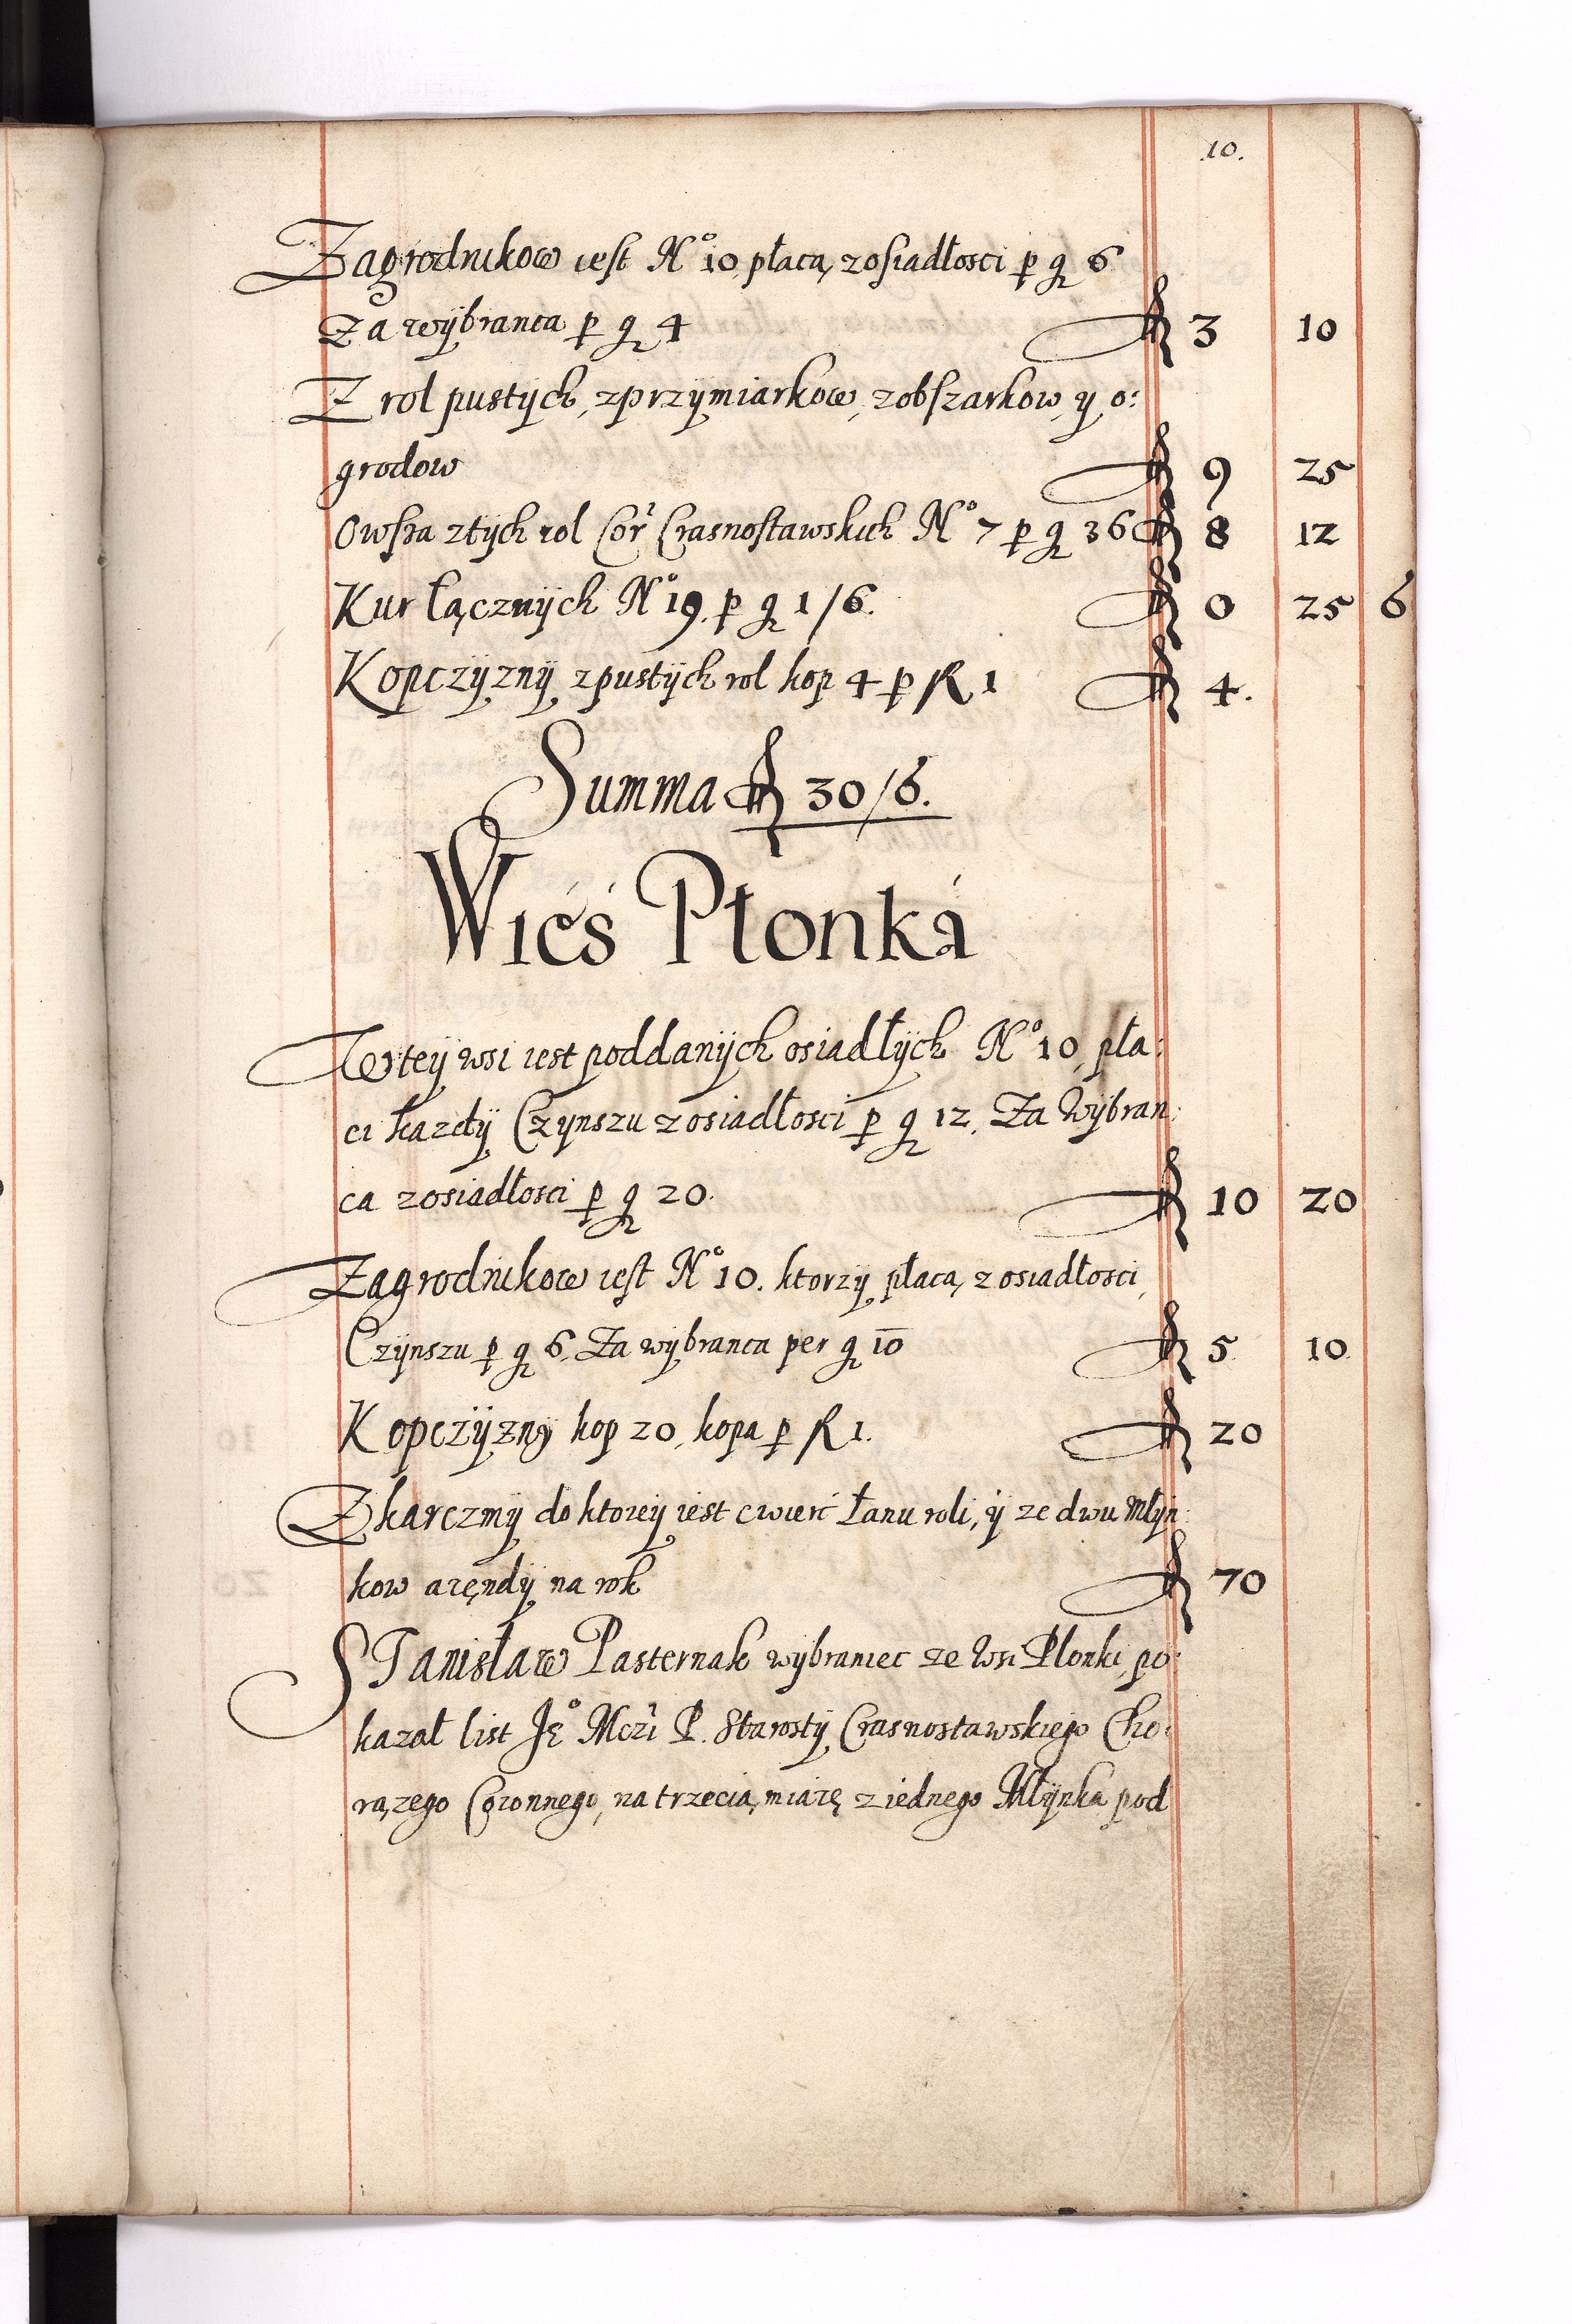 10.
Zagrodnikow iest No 10 płacą zosiadłosci p g 6
Za wybranca p g 4 fl 3 10
Z rol pustÿch, zprzÿmiarkow, zobszarkow, y o:
grodow fl 9 25
Owsza ztÿch rol Cor Crasnostawskich No 7 p g 36 fl 8 12
Kur łącznÿch No 19. p g 1/6. fl 0 25 6
Kopczÿznÿ zpustÿch rol kop 4 p fl 1 fl 4.
Summa fl 30/6.
Wieś Płonka
Wteÿ wsi iest poddanÿch osiadłÿch No 10, pła:
ci każdÿ Czynszu zosiadłosci p g 12. Za Wÿbran:
ca zosiadłosci p g 20. fl 10 20
Zagrodnikow iest No 10. ktorzÿ płacą zosiadłosci,
Czÿnszu p g 6. Za wÿbranca per g 10 fl 5. 10.
Kopczÿzny kop 20, kopa p fl 1. fl 20
Zkarczmÿ do ktoreÿ iest cwierć łanu roli, ÿ ze dwu Młÿn:
kow aręndÿ na rok fl 70
Stanisław Pasternak wÿbraniec ze Wsi Płonki, po:
kazał list Jeo Mczi P. Starostÿ Crasnostawskiego Cho:
rązego Coronnego, na trzecią miarę z iednego Młÿnka pod